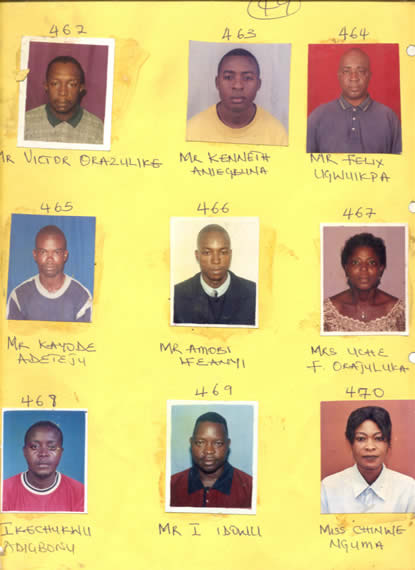 49
462
463
464
MR VICTOR ORAZULIKE
MR KENNETH
ANIEGBUNA
MR FELIX
UGWUIKPA
465
466
467
MR KAYODE
ADETEJU
MR AMOBI
IFEANYI
MRS UCHE
F. ORAJULUKA
468
469
470
IKECHUKWU
ADIGBONU
MR I IDOWU
MISS CHINWE
NGUMA